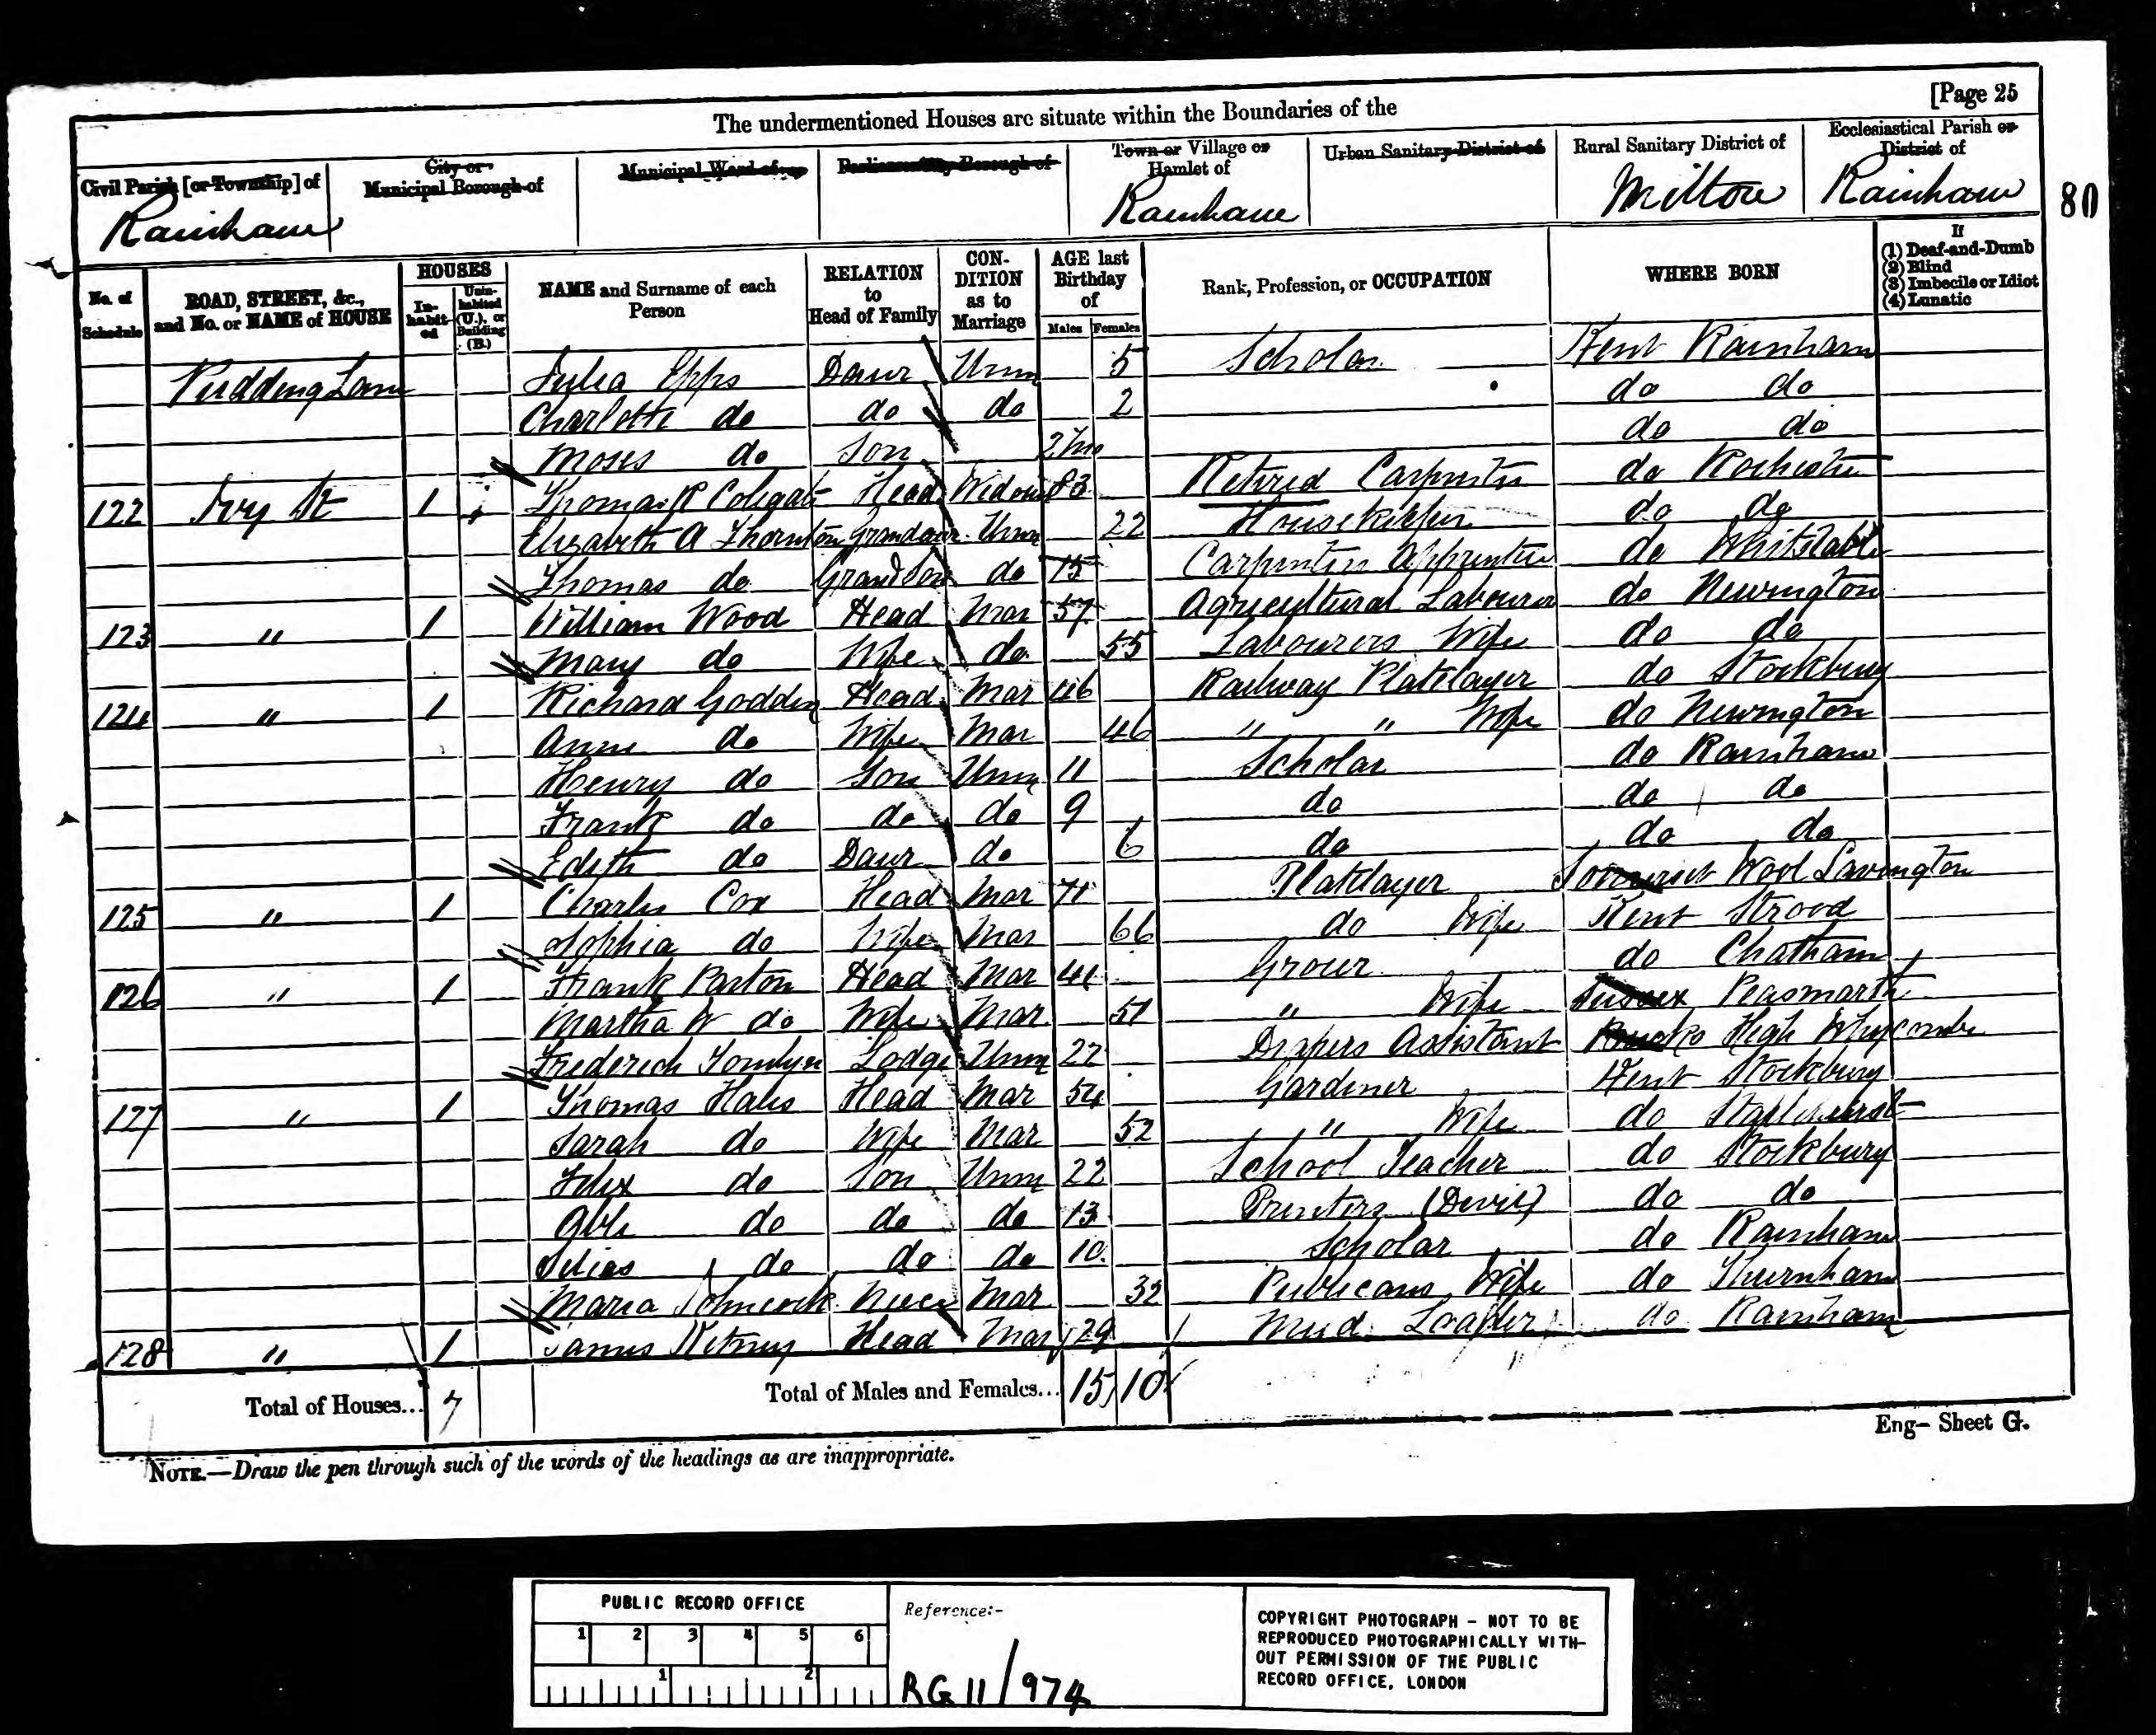 [Page 25
The undermentioned Houses are situate within the Boundaries of the
Civil Parish [or Township] of
City or
Municipal Borough of
Municipal Ward of
Parliamentary Borough of
Town or Village or
Hamlet of
Urban Sanitary District of
Rural Sanitary District of
Ecclesiastical Parish or
District of
Rainham
Rainham
Milton
Rainham
80
No. of
Schedule
ROAD, STREET, &c.,
and No. or NAME of HOUSE
HOUSES
In-
habit-
ed
Unin-
habited
(U.), or
Building
(B.)
NAME and Surname of each
Person
RELATION
to
Head of Family
CON-
DITION
as to
Marriage
AGE last
Birthday
of
Males
Females
Rank, Profession, or OCCUPATION
WHERE BORN
If
(1) Deaf-and-Dumb
(2) Blind
(3) Imbecile or Idiot
(4) Lunatic
Pudding Lane Julia Epps Daur Unm 5 Scholar Kent Rainham
Charlotte do do do 2 do do
Moses do Son 2 mo do do
122 Ivy St 1 Thomas R Colegate Head Widow 83 Retired Carpenter do Rochester
Elizabeth A Thornton Grandaur Unm 22 Housekeeper do do
Thomas do Grand Son do 15 Carpenters Apprentice do Whitstable
123 " 1 William Wood Head Mar 57 Agricultural Labourer do Newington
Mary do Wife do 55 Labourers Wife do do
124 " 1 Richard Godden Head Mar 46 Railway Platelayer do Stockbury
Anne do Wife Mar 46 " " Wife do Newington
Henry do Son Unm 11 Scholar do Rainham
Frank do do do 9 do do do
Edith do Daur do 6 do do do
125 " 1 Charles Cox Head Mar 71 Platelayer Somerset Wool Lavington
Sophia do Wife Mar 66 do Wife Kent Strood
126 " 1 Frank Parton Head Mar 41 Grocer do Chatham
Martha W do Wife Mar 51 " Wife Sussex Peasmarsh
Frederick Tomlyn Lodge Unm 22 Drapers Assistant Bucks High Whycombe
127 " 1 Thomas Hales Head Mar 54 Gardiner Kent Stockbury
Sarah do Wife Mar 52 " Wife do Staplehurst
Felix do Son Unm 22 School Teacher do Stockbury
Able do do do 13 Printers (Devil) do do
Silias do do do 10 Scholar do Rainham
Maria Niece Mar 32 Publicans Wife do Thurnham
128 " 1 James Kitney Head Mar 29 Mud do Rainham
Total of Houses... 7
Total of Males and Females... 15 10
Eng- Sheet G.
NOTE.—Draw the pen through such of the words of the headings as are inappropriate.
PUBLIC RECORD OFFICE
1 2 3 4 5 6
1 2
Reference:-
RG 11/974
COPYRIGHT PHOTOGRAPH - NOT TO BE
REPRODUCED PHOTOGRAPHICALLY WITH-
OUT PERMISSION OF THE PUBLIC
RECORD OFFICE, LONDON